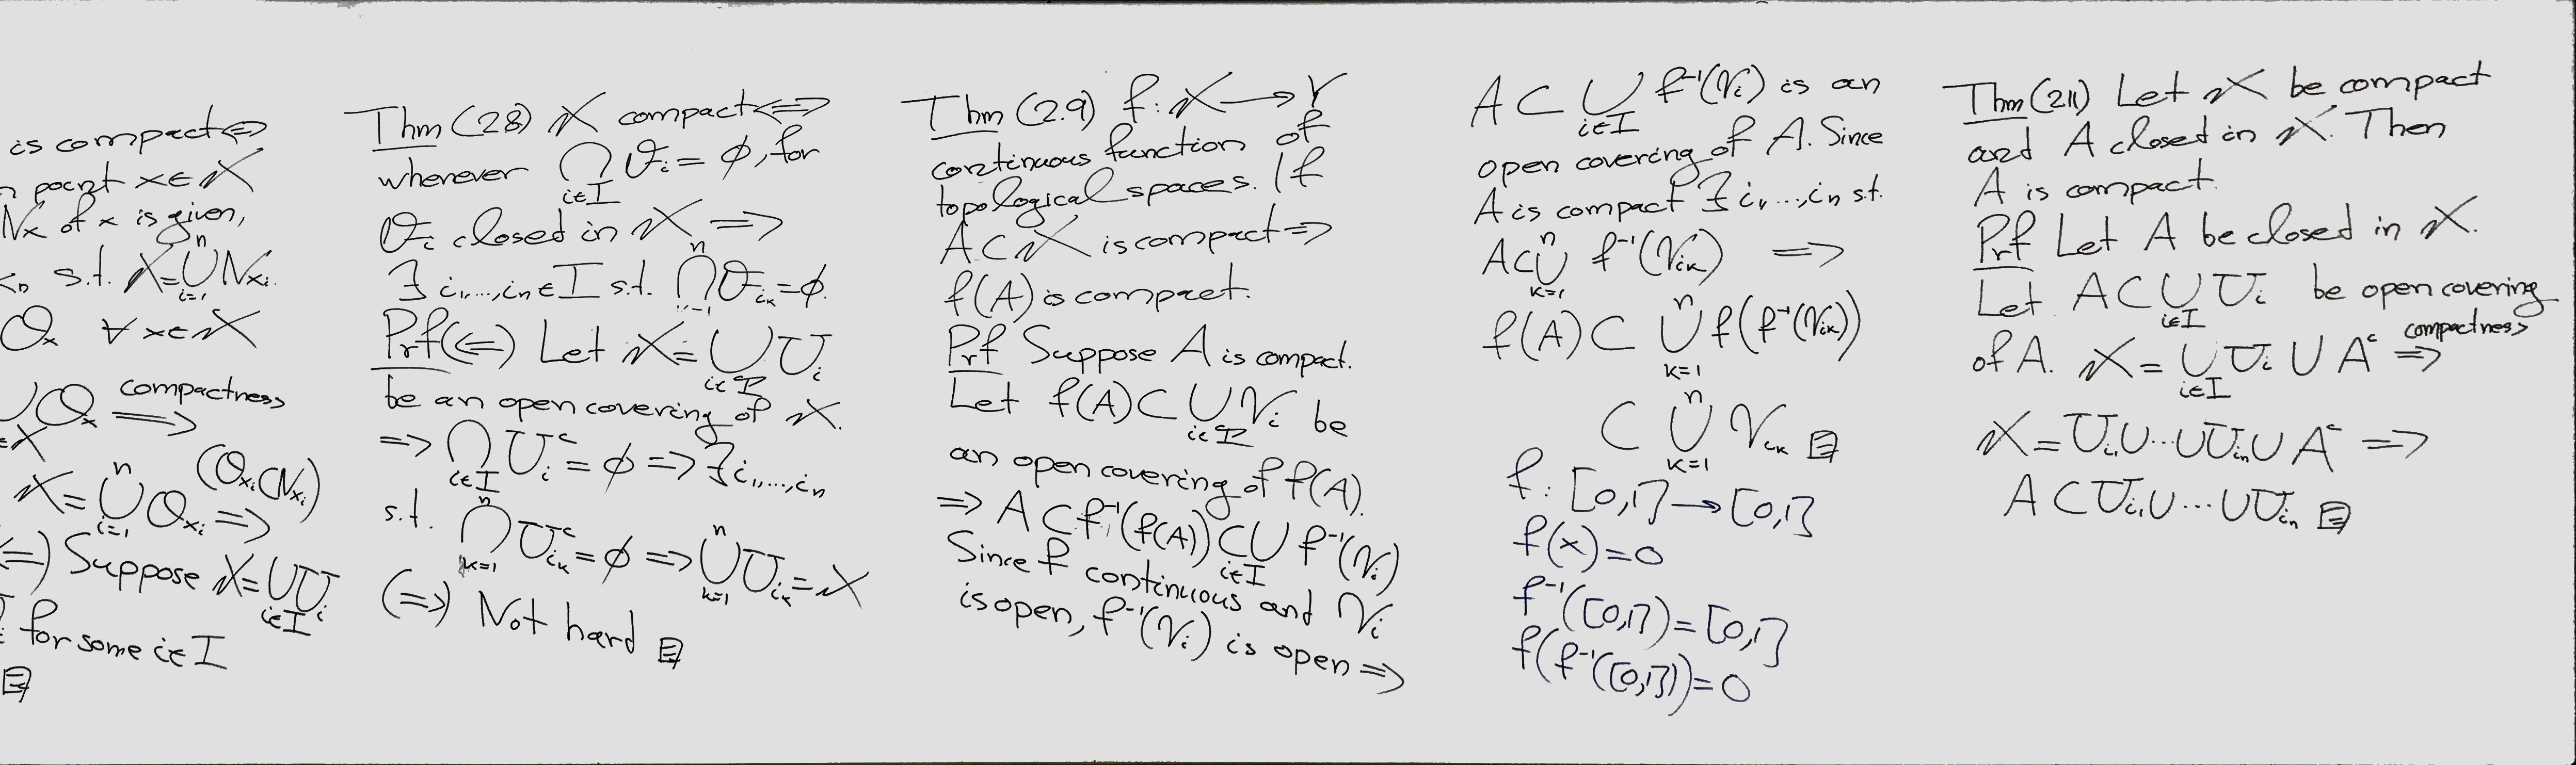 is compact <=>
point x∈X
Nx of x is given,
s.t. X = ⋃_{i=1}^{n} N_{x_i}.
O_x ∀ x∈X
⋃ O_x compactness =>
X = ⋃_{i=1}^{n} O_{x_i} (O_{x_i} ⊂ N_{x_i}) =>
(<=) Suppose X = ⋃_{i∈I} U_i
for some i∈I
Thm (2.8) X compact <=>
whenever ⋂_{i∈I} V_i = ∅, for
V_i closed in X =>
∃ i_1,...,i_n ∈ I s.t. ⋂_{k=1}^{n} V_{i_k} = ∅.
Prf (<=) Let X = ⋃_{i∈I} U_i
be an open covering of X.
=> ⋂_{i∈I} U_i^c = ∅ => ∃ i_1,...,i_n
s.t. ⋂_{k=1}^{n} U_{i_k}^c = ∅ => ⋃_{k=1}^{n} U_{i_k} = X
(=>) Not hard
Thm (2.9) f: X → Y
continuous function of
topological spaces. If
A ⊂ X is compact =>
f(A) is compact.
Prf Suppose A is compact.
Let f(A) ⊂ ⋃_{i∈I} V_i be
an open covering of f(A).
=> A ⊂ f^{-1}(f(A)) ⊂ ⋃_{i∈I} f^{-1}(V_i)
Since f continuous and V_i
is open, f^{-1}(V_i) is open =>
A ⊂ ⋃_{i∈I} f^{-1}(V_i) is an
open covering of A. Since
A is compact ∃ i_1,...,i_n s.t.
A ⊂ ⋃_{k=1}^{n} f^{-1}(V_{i_k}) =>
f(A) ⊂ ⋃_{k=1}^{n} f(f^{-1}(V_{i_k}))
⊂ ⋃_{k=1}^{n} V_{i_k}
f: [0,1] → [0,1]
f(x)=0
f^{-1}([0,1]) = [0,1]
f(f^{-1}([0,1])) = 0
Thm (2.11) Let X be compact
and A closed in X. Then
A is compact.
Prf Let A be closed in X.
Let A ⊂ ⋃_{i∈I} U_i be open covering
of A. X = ⋃_{i∈I} U_i ∪ A^c compactness =>
X = U_{i_1} ∪ ... ∪ U_{i_n} ∪ A^c =>
A ⊂ U_{i_1} ∪ ... ∪ U_{i_n}